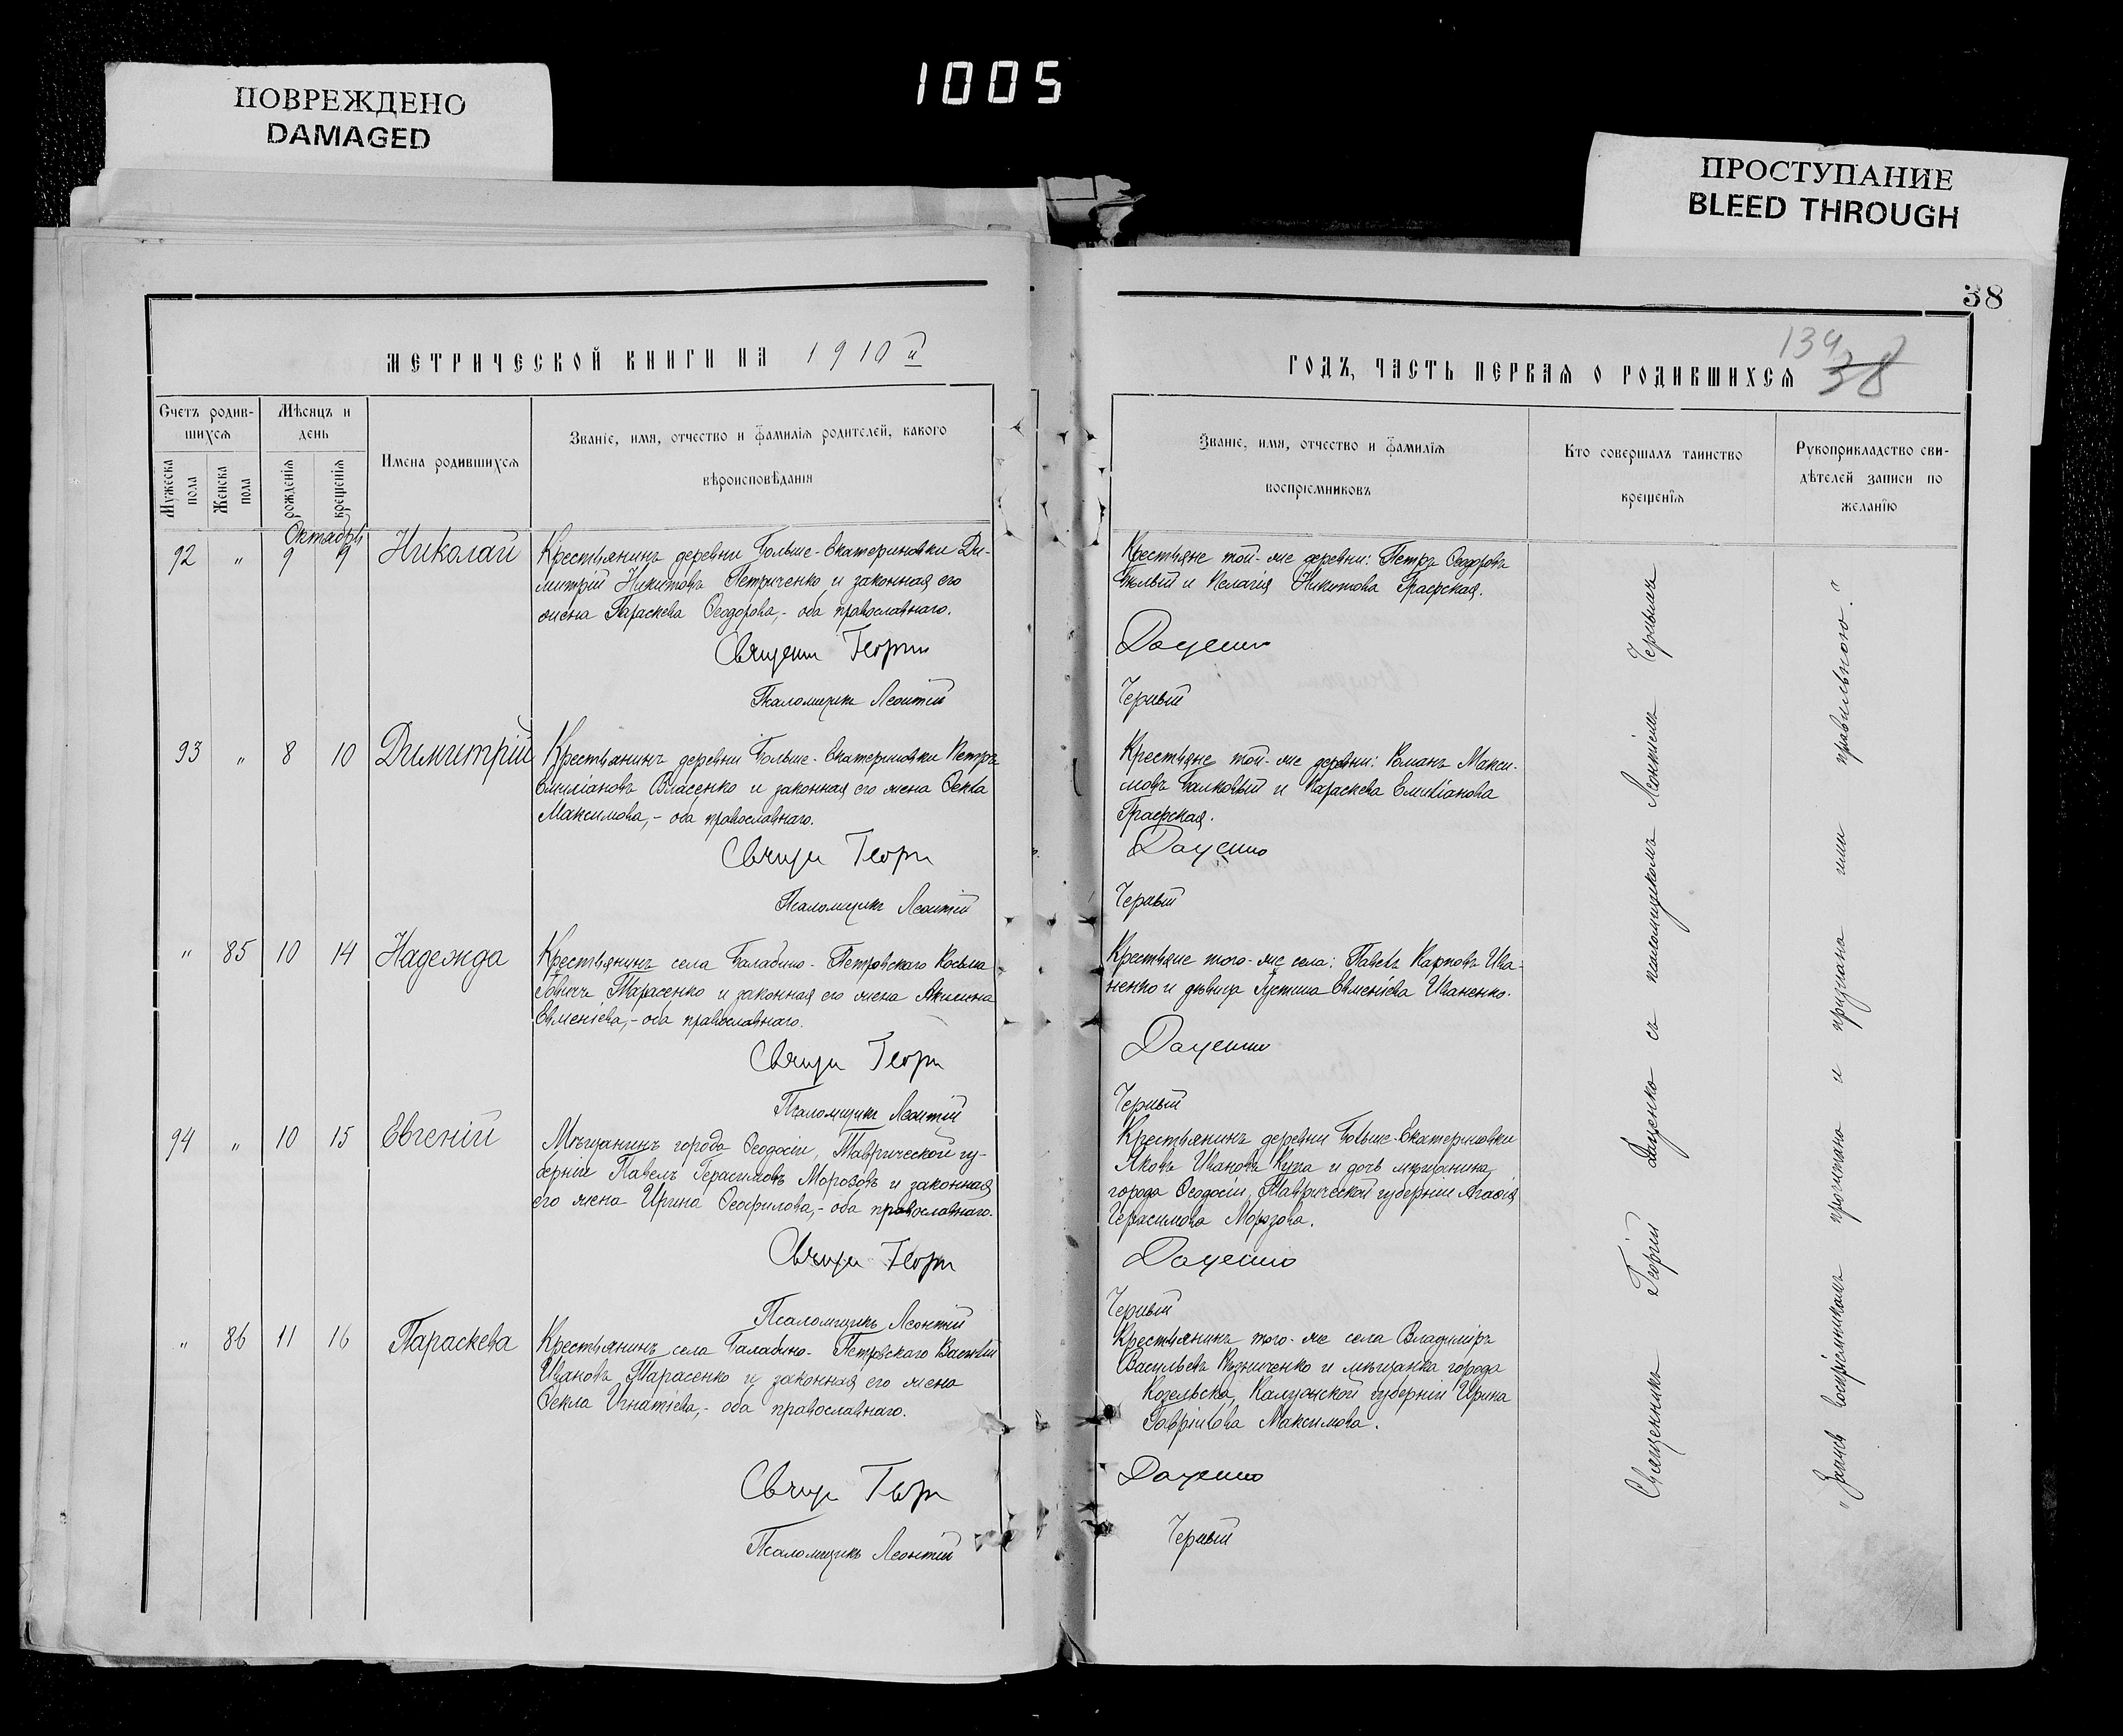 1005
ПОВРЕЖДЕНО
DAMAGED
ПРОСТУПАНИЕ
BLEED THROUGH
МЕТРИЧЕСКОЙ КНИГИ НА 1910й
Счетъ родив-
шихся
Мѣсяцъ и
день
Мужеска
пола
Женска
пола
рожденія
крещенія
Имена родившихся
Званіе, имя, отчество и фамилія родителей, какого
вѣроисповѣданія
Октября
92 " 9 9 Николай
Крестьянинъ деревни Больше-Екатериновки Ди-
митрій Никитовъ Петриченко и законная его
жена Параскева Ѳеодорова,- оба православнаго.
Священ Георгій
Псаломщикъ Леонтій
93 " 8 10 Димитрій
Крестьянинъ деревни Больше-Екатериновки Петръ
Емиліановъ Власенко и законная его жена Ѳекла
Максимова,- оба православнаго.
Свящ Георг
Псаломщикъ Леонтій
" 85 10 14 Надежда
Крестьянинъ села Балабино-Петровскаго Косьма
Тарасенко и законная его жена Акилина
Евменіева,- оба православнаго.
Свящ Георг
Псаломщикъ Леонтій
94 " 10 15 Евгеній
Мѣщанинъ города Ѳеодосіи, Таврической гу-
берніи Павелъ Герасимовъ Морозовъ и законная
его жена Ирина Ѳеофилова,- оба православнаго.
Свящ Георг
Псаломщикъ Леонтій
" 86 11 16 Параскева
Крестьянинъ села Балабино-Петровскаго Василій
Ивановъ Тарасенко и законная его жена
Ѳекла Игнатіева,- оба православнаго.
Свящ Геор
Псаломщикъ Леонтій
38
134
38
ГОДЪ, ЧАСТЬ ПЕРВАЯ О РОДИВШИХСЯ
Званіе, имя, отчество и фамилія
воспріемниковъ
Кто совершалъ таинство
крещенія
Рукоприкладство сви-
дѣтелей записи по
желанію
Крестьяне той-же деревни: Петръ Ѳеодоровъ
Бѣлый и Пелагія Никитова Графская.
Даценко
Черный
Крестьяне той-же деревни: Романъ Макси-
мовъ Балковый и Параскева Емиліанова
Графская.
Даценко
Черный
Крестьяне того-же села: Павелъ Карповъ Ива-
ненко и дѣвица Іустина Евменіева Иваненко.
Даценко
Черный
Крестьянинъ деревни Больше-Екатериновки
Яковъ Ивановъ Купа и дочь мѣщанина
города Ѳеодосіи, Таврической губерніи Агафія
Герасимова Морозова.
Даценко
Черный
Крестьянинъ того-же села Владиміръ
Васильевъ Кузниченко и мѣщанка города
Козельска, Калужской губерніи Ирина
Гавріилова Максимова.
Даценко
Черный
Священникъ Георгій Даценко съ псаломщикомъ Леонтіемъ Чернымъ
"Запись воспріемникамъ прочитана и признана ими правильною."